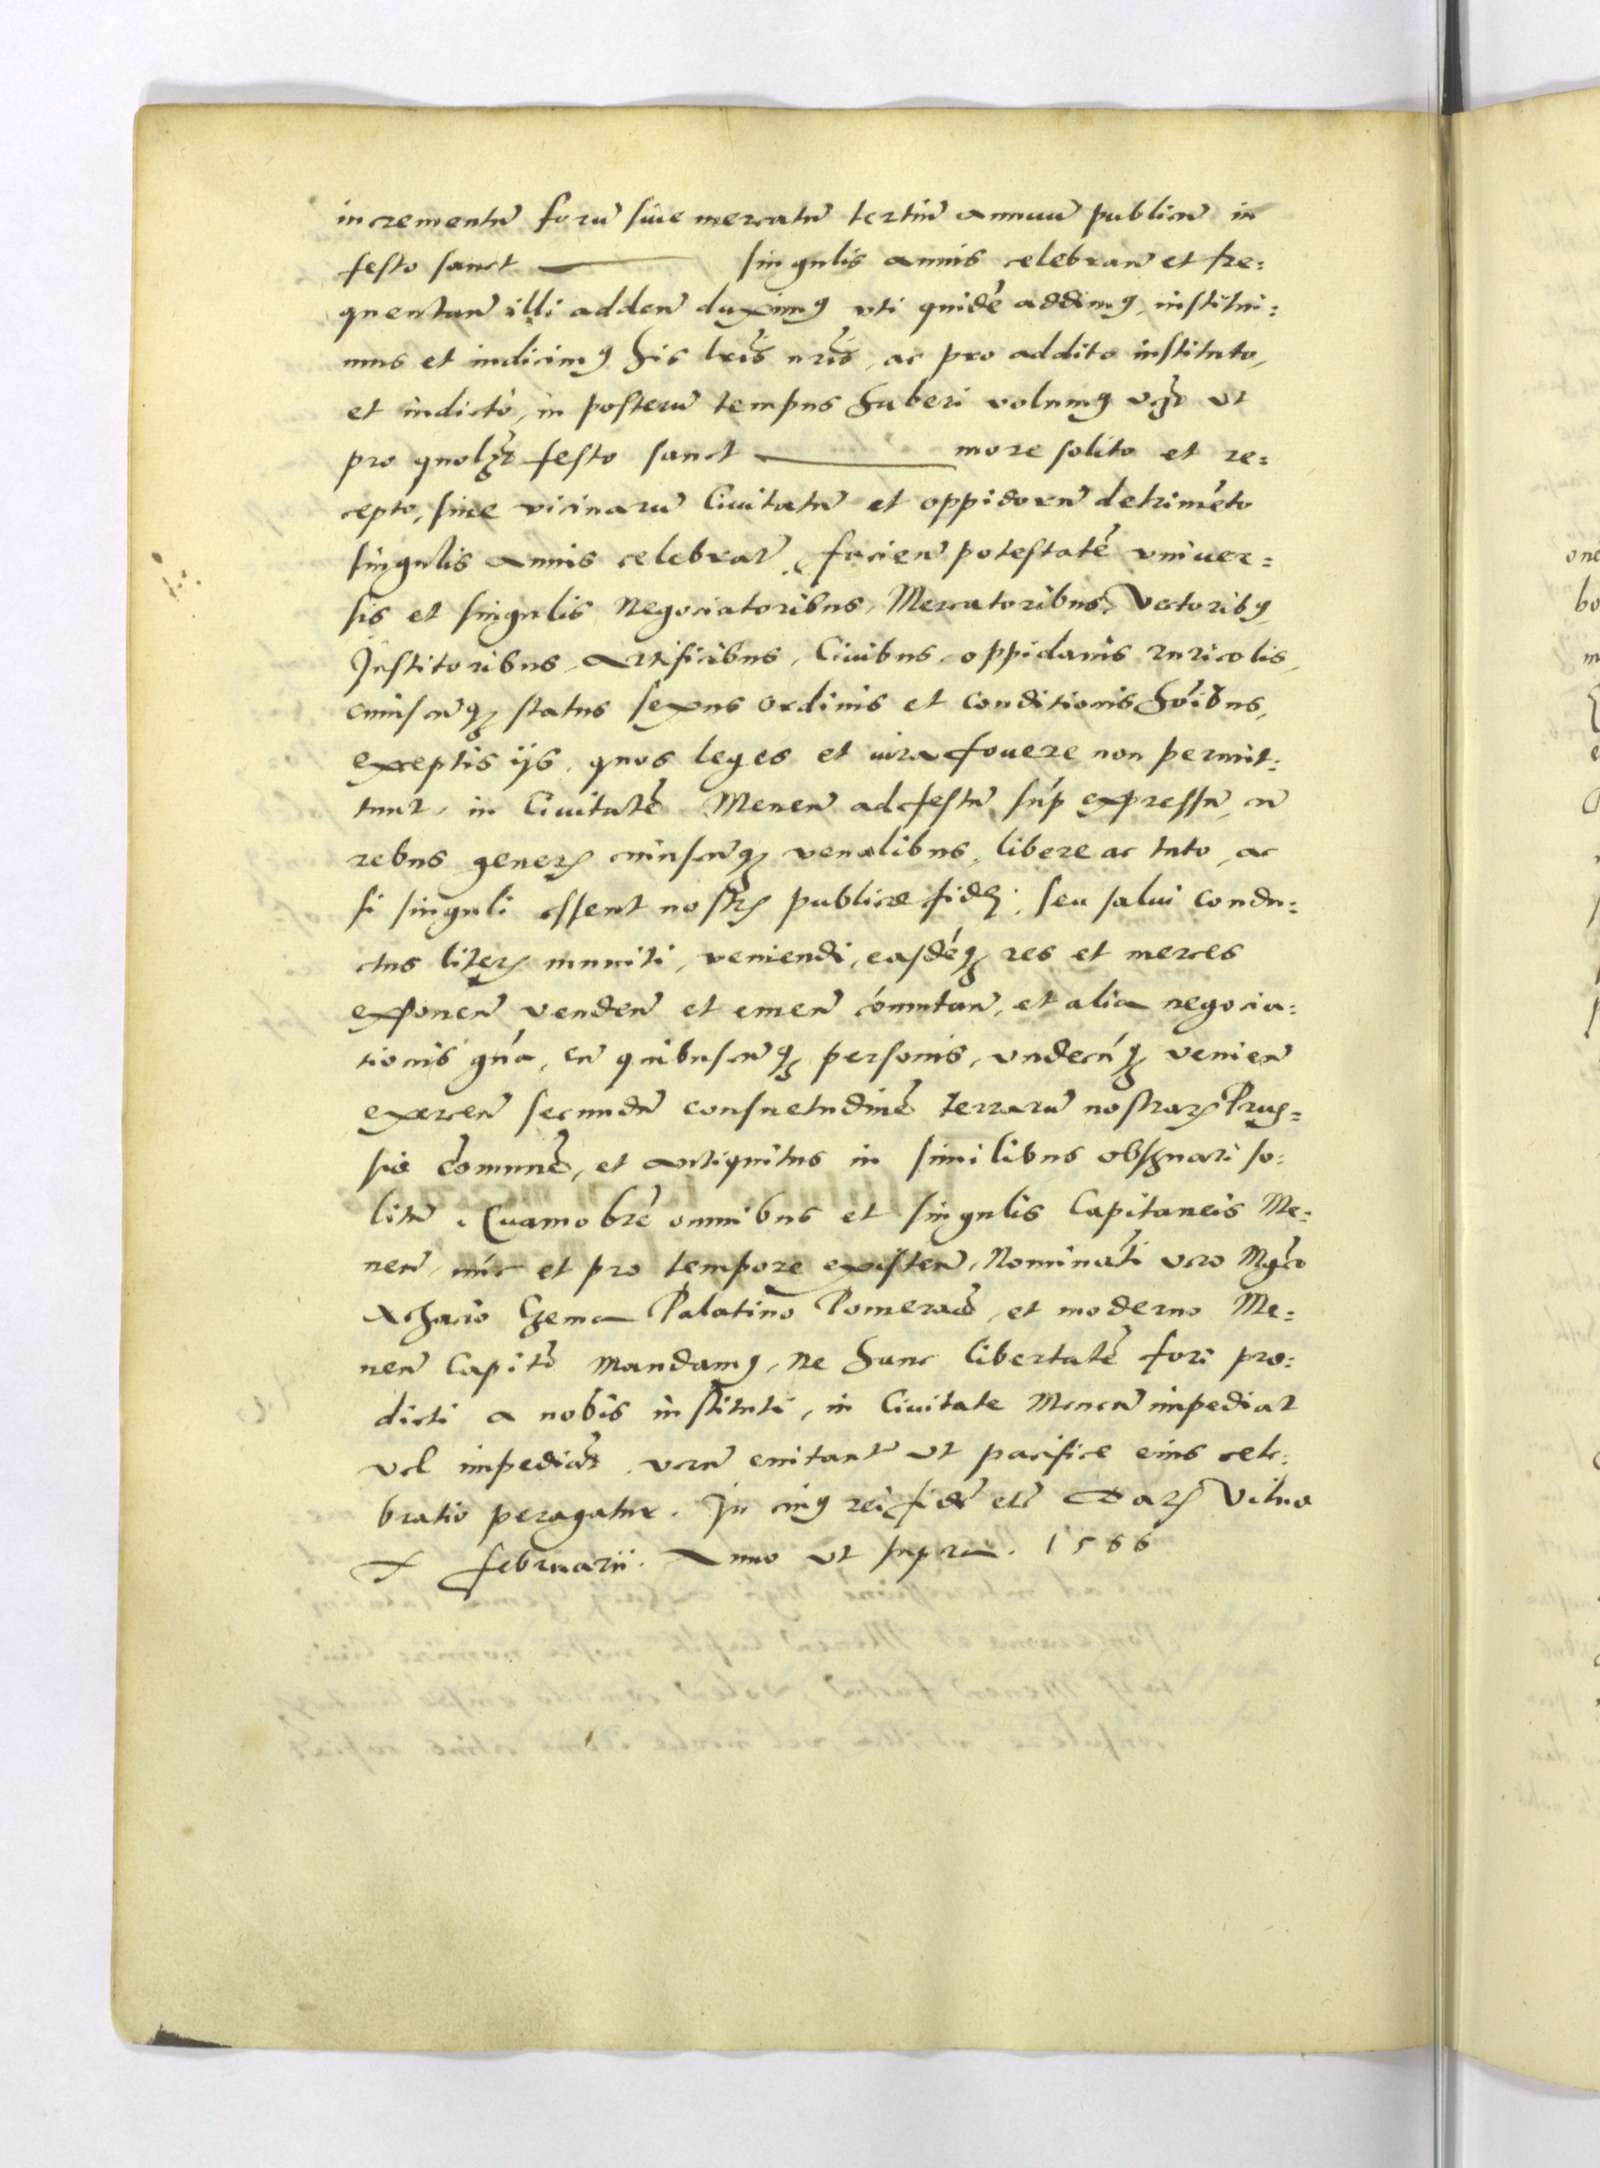 incrementũ forũ siue mercatũ tertiũ annuũ publicũ in
festo sanct —— singulis annis celebranñ et fre:
quentanñ illi addenñ duximꝰ uti quidẽ addimꝰ, institui:
mus et indicimꝰ his lrĩs nrĩs, ac pro addito instituto,
et indicto, in posterũ tempus haberi volumꝰ ut
pro quolẓt festo sanct —— more solito et re:
cepto, sine vicinarũ Ciuitatũ et oppidorũ detrimẽto
singulis annis celebrat, facienñ potestatẽ vniuer:
sis et singulis Negociatoribus, Mercatoribus, Vectoribꝰ,
Institoribus, Artificibus, Ciuibus, oppidanis ruricolis,
cuiuscunqꝫ status sexus ordinis et conditionis hoĩbus,
exceptis ijs, quos leges et iura fouere non permit:
tunt, in Ciuitatẽ Menenñ ad festũ sup̃ expressũ, cũ
rebus generꝭ cuiuscunqꝫ venalibus, libere ac tuto, ac
si singuli essent nostrꝭ publicæ fidei, seu salui condu:
ctus literꝭ muniti, veniendi, easdẽqꝫ res et merces
exponenñ vendenñ et emenñ cõmutanñ, et alia negocia:
tionis gñra, cũ quibuscunqꝫ personis, undecũqꝫ venienñ
exercenñ secundũ consuetudinẽ terrarũ nostrarꝭ Prus:
siæ cõmunẽ, et antiquitus in similibus obseruari so:
litũ. Quamobrẽ omnibus et singulis Capitaneis Me:
nenñ, nũc et pro tempore existenñ, Nominãti vero Mgco
Achacio Czema Palatino Pomeraniæ, et moderno Me:
nenñ Capitõ mandamꝰ, ne hanc libertatẽ fori præ:
dicti a nobis instituti, in Ciuitate Menenñ impediat
vel impediãt, verũ enitant~ ut pacifice eius cele:
bratio peragatur. In cuiꝰ rei fidẽ etc̃ Datꝭ Vilnæ
X februarii. Anno ut supra. 1566